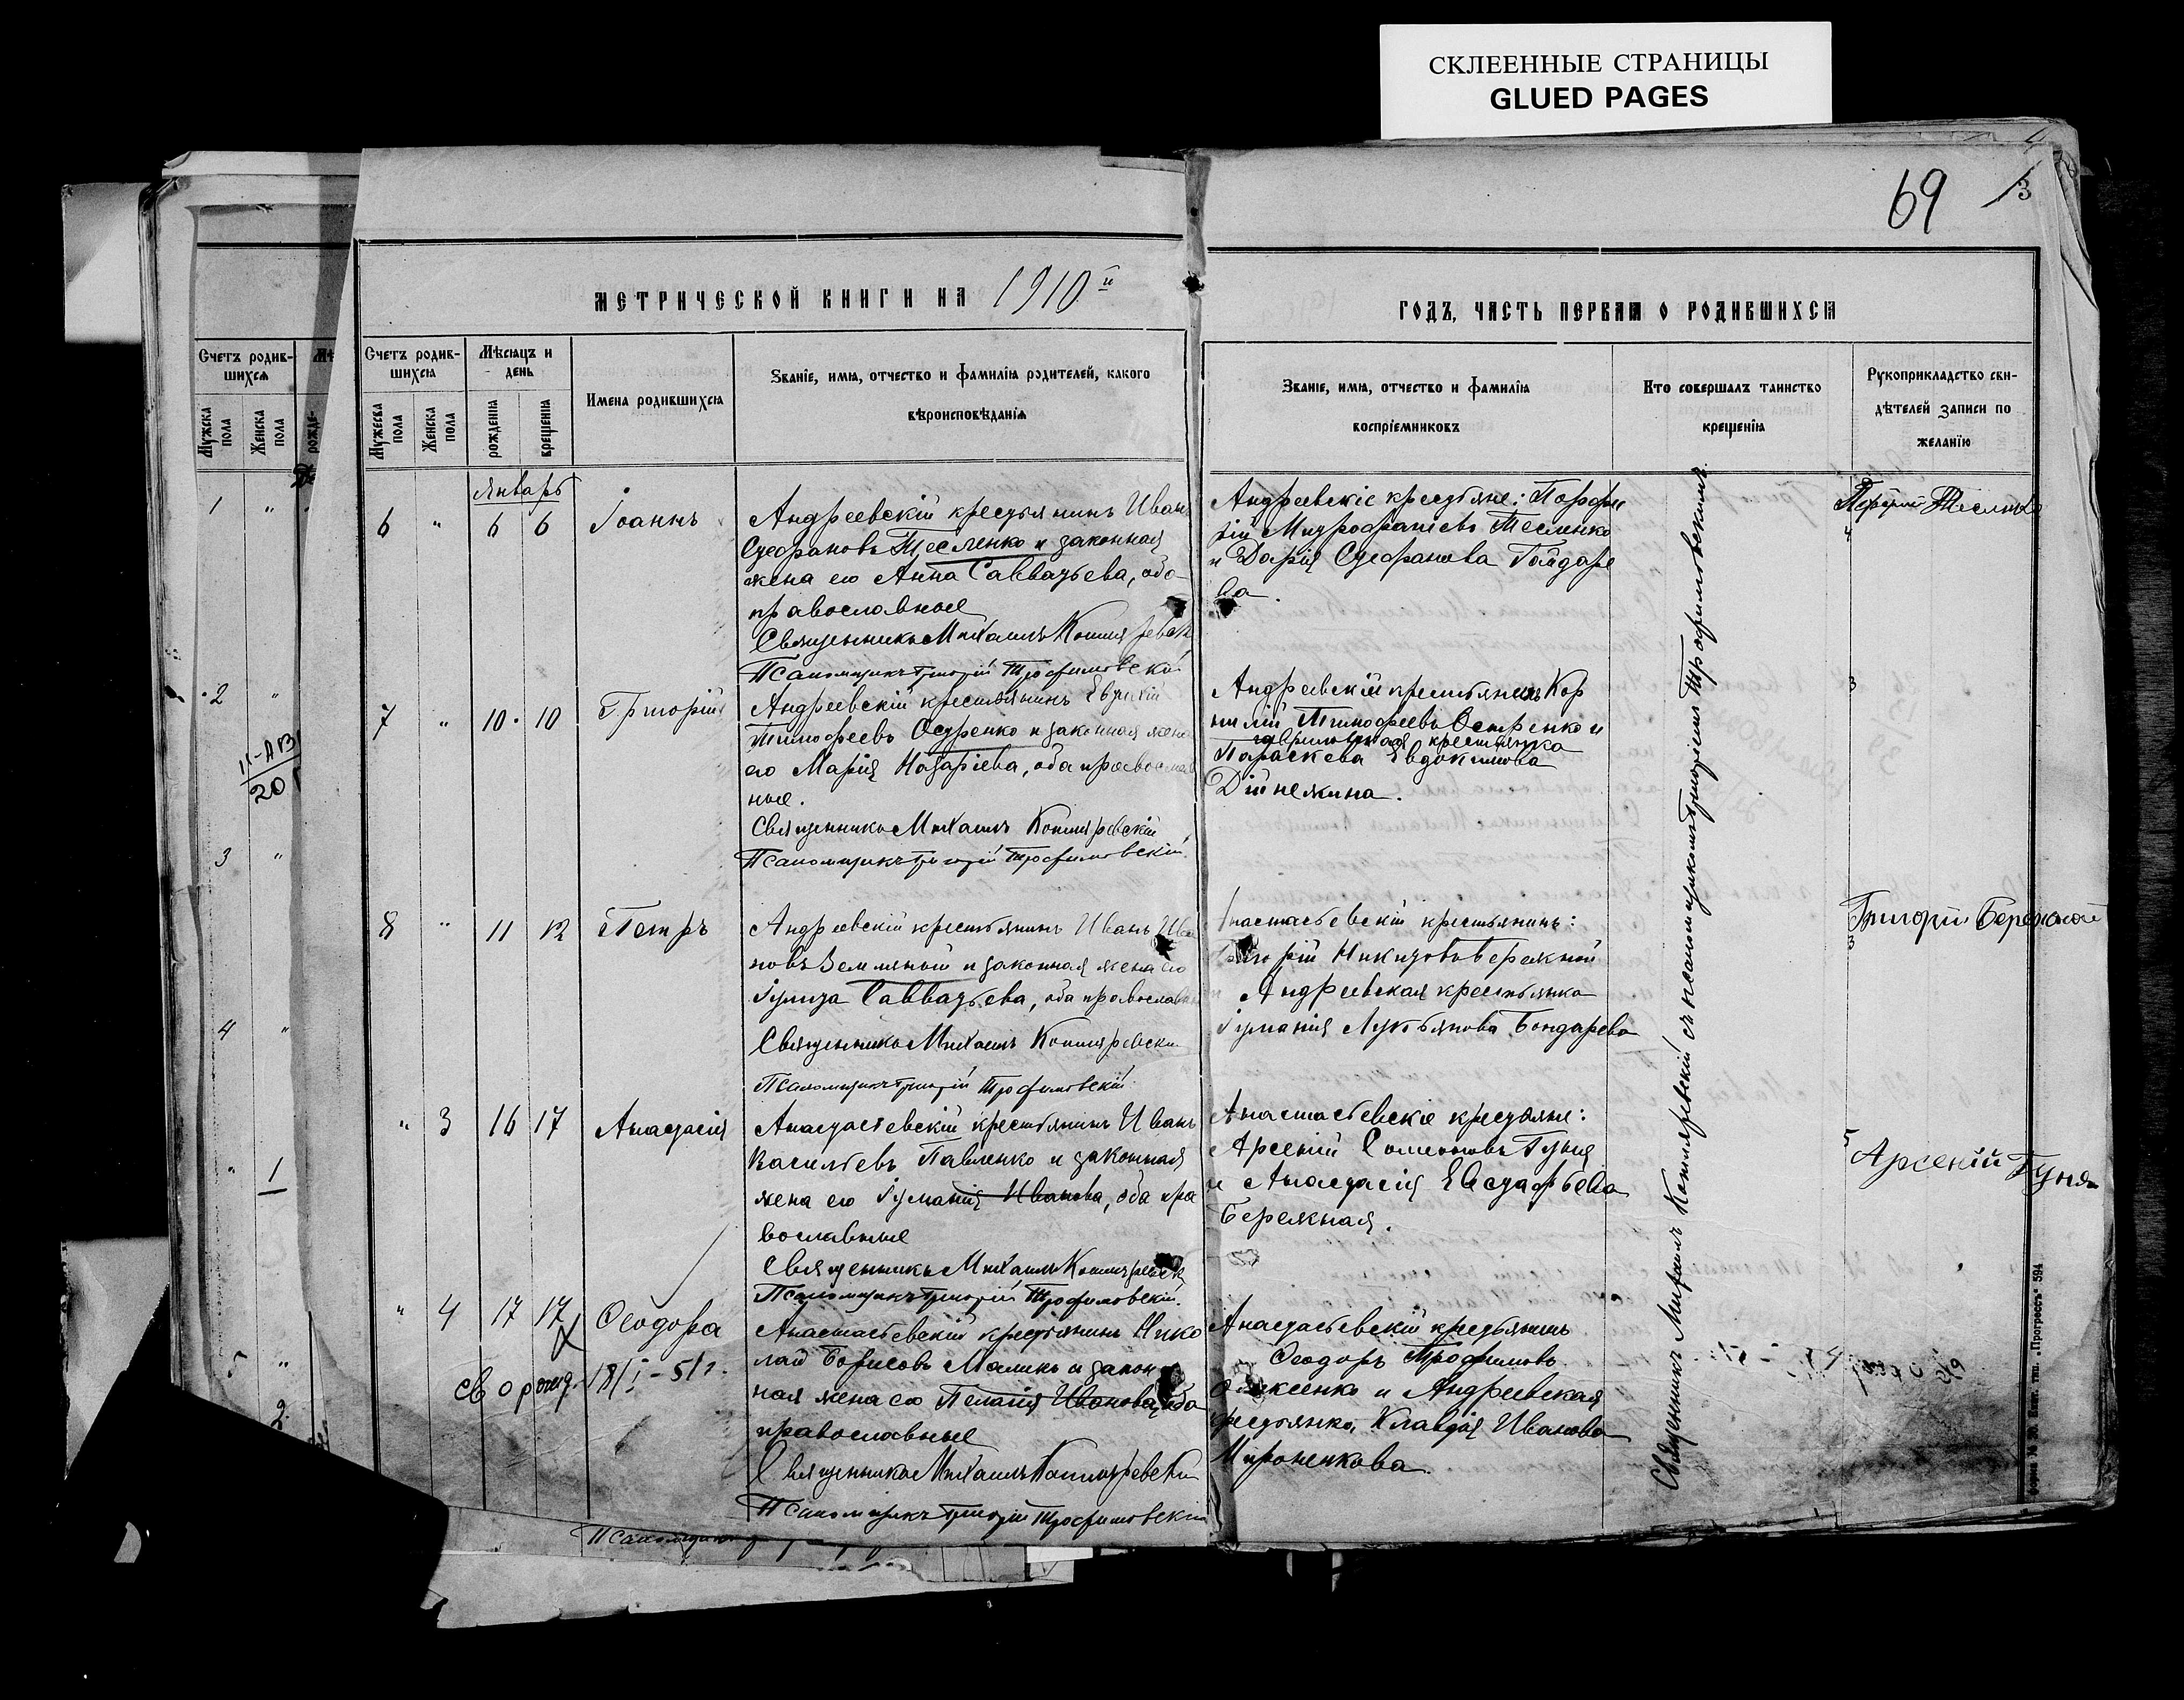 СКЛЕЕННЫЕ СТРАНИЦЫ
GLUED PAGES
69
3
МЕТРИЧЕСКОЙ КНИГИ НА 1910й
ГОДЪ, ЧАСТЬ ПЕРВАЯ О РОДИВШИХСЯ
Счетъ родив-
шихся
Мужска пола
Женска пола
рожде-
Счетъ родив-
шихся
Мужеска пола
Женска пола
Мѣсяцъ и
день
рожденія
крещенія
Имена родившихся
Званіе, имя, отчество и фамилія родителей, какого
вѣроисповѣданія
Званіе, имя, отчество и фамилія
воспріемниковъ
Кто совершалъ таинство
крещенія
Рукоприкладство сви-
дѣтелей записи по
желанію
1 "
2 "
20
3 "
4 "
" 1
5 "
2
Январь
6 " 6 6 Іоаннъ
Андреевскій крестьянинъ Иванъ
Стефановъ Тесленко и законная
жена его Анна Савватьева, оба
православные
Священникъ Михаилъ Котляревск
Псаломщикъ Григорій Трофимовскій
Андреевскіе крестьяне: Порфи
рій Митрофановъ Тесленко
и Дарія Стефанова Гайдаре
ва.
Тесленко
7 " 10 10 Григорій
Андреевскій крестьянинъ Евтихій
Тимофеевъ Остренко и законная жена
его Марія Назаріева, оба православ
ные.
Священникъ Михаилъ Котляревскій
Псаломщикъ Григорій Трофимовскій.
Андреевскій крестьянинъ Кор
нилій Тимофеевъ Остренко и
Гавриловская крестьянка
Параскева Евдокимова
Дійнежина.
8 " 11 12 Петръ
Андреевскій крестьянинъ Иванъ Ива
новъ Земляной и законная жена его
Іулита Савватьева, оба православн
Священникъ Михаилъ Котляревскій
Псаломщикъ Григорій Трофимовскій
Анастасьевскій крестьянинъ:
Григорій Никитовъ Бережной
и Андреевская крестьянка
Іуліанія Лукьянова Бондарева
Григорій Бережной
" 3 16 17 Анастасія
Анастасьевскій крестьянинъ Иванъ
Васильевъ Павленко и законная
жена его Іуліанія Иванова, оба пра
вославные
Священникъ Михаилъ Котляревск
Псаломщикъ Григорій Трофимовскій.
Анастасьевскіе крестьяне:
Арсеній Самсоновъ Гуня
и Анастасія Евстафьева
Бережная.
Арсеній Гуня
" 4 17 17 Ѳеодора
св о рожд. 18/I - 51 г.
Анастасьевскій крестьянинъ Нико
лай Борисовъ Маликъ и закон
ная жена его Пелагія Иванова, оба
православные
Священникъ Михаилъ Котляревскій
Псаломщикъ Григорій Трофимовскій
Анастасьевскій крестьянинъ
Ѳеодоръ Трофимовъ
и Андреевская
крестьянка, Клавдія Иванова
Мироненкова.
Священникъ Михаилъ Котляревскій съ псаломщикомъ Григоріемъ Трофимовскимъ.
Псаломщикъ
тип. „Прогрессъ“ 594